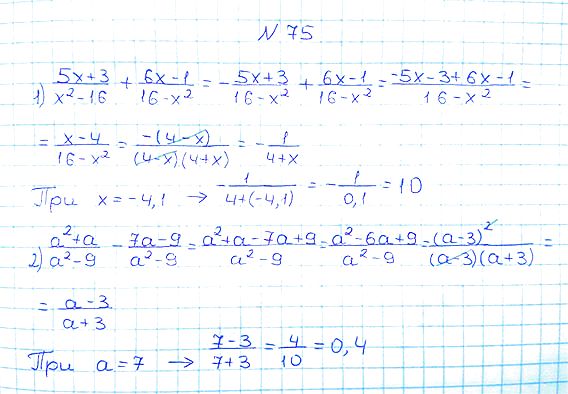 N 75
1) (5x+3)/(x²-16) + (6x-1)/(16-x²) = -(5x+3)/(16-x²) + (6x-1)/(16-x²) = (-5x-3+6x-1)/(16-x²) =
= (x-4)/(16-x²) = (-(4-x))/((4-x)(4+x)) = -1/(4+x)
При x=-4,1 → -1/(4+(-4,1)) = -1/(0,1) = 10
2) (a²+a)/(a²-9) - (7a-9)/(a²-9) = (a²+a-7a+9)/(a²-9) = (a²-6a+9)/(a²-9) = (a-3)²/((a-3)(a+3)) =
= (a-3)/(a+3)
При a=7 → (7-3)/(7+3) = 4/10 = 0,4